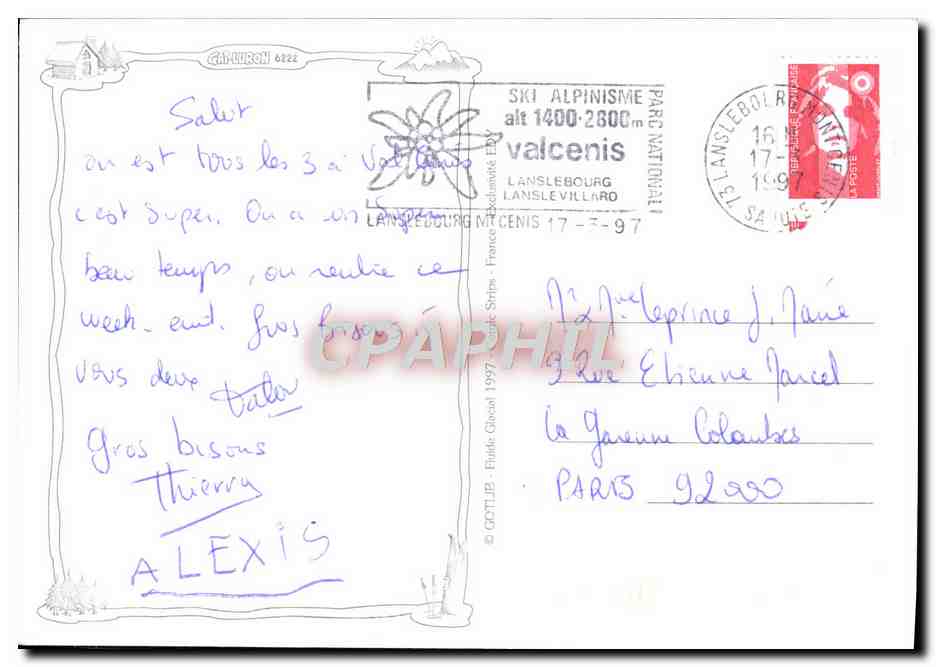 GAI-LURON 6222
Salut
on est tous les 3 à Val Cenis
c'est super. On a un super
beau temps, on rentre ce
week-end. Gros bisous à
vous deux
Gros bisous
Thierry
ALEXIS
SKI ALPINISME
alt 1400-2800m
valcenis
LANSLEBOURG
LANSLEVILLARD
PARC NATIONAL
LANSLEBOURG MT CENIS 17-3-97
73 LANSLEBOURG MONT CENIS
16 H
17-
1997
SAVOIE
REPUBLIQUE FRANÇAISE
LA POSTE
© GOTLIB - Fluide Glacial 1997 - Comic Strips - France - Exclusivité EDY
Mr & Mme Leprince J. Marie
3 Rue Etienne Marcel
La Garenne Colombes
PARIS 92000
CPAPHIL